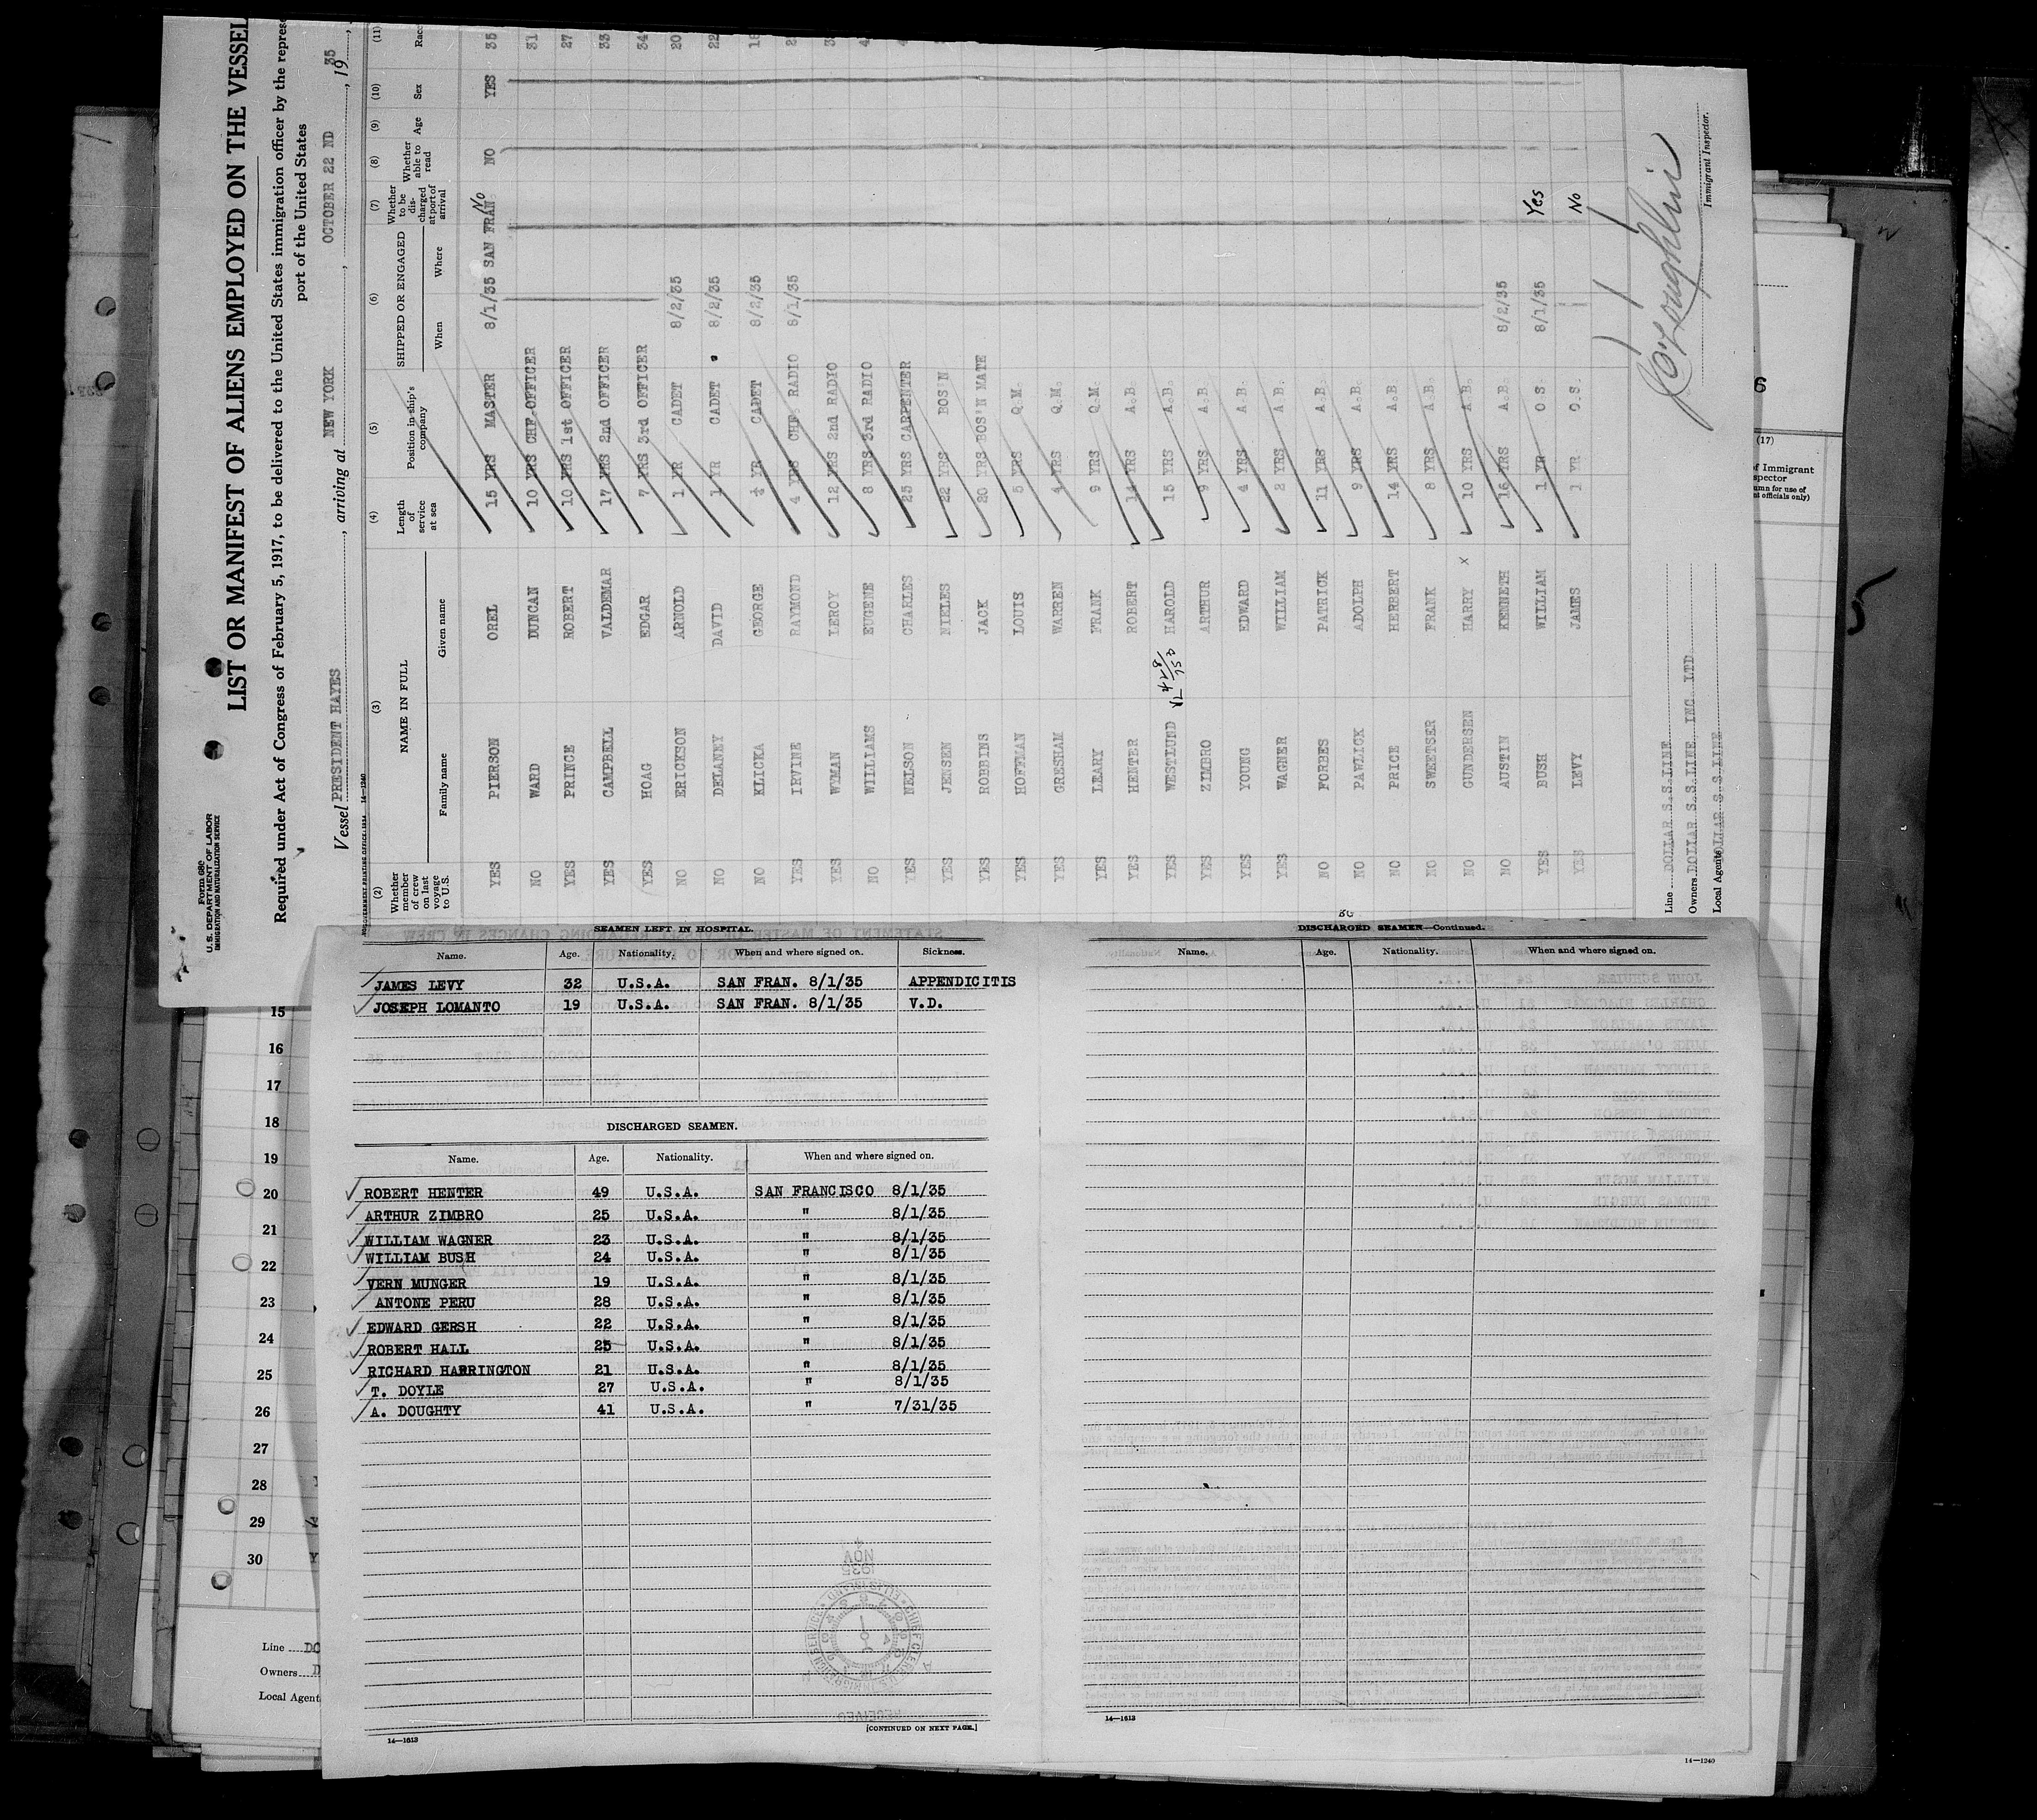 Form 680
U.S. DEPARTMENT OF LABOR
IMMIGRATION AND NATURALIZATION SERVICE
LIST OR MANIFEST OF ALIENS EMPLOYED ON THE VESSEL
Required under Act of Congress of February 5, 1917, to be delivered to the United States immigration officer by the repres
port of the United States
Vessel PRESIDENT HAYES, arriving at NEW YORK, OCTOBER 22 ND, 19 35,
(2) (3) (4) (5) (6) (7) (8) (9) (10) (11)
Whether member of crew on last voyage to U.S. NAME IN FULL Family name Given name Length of service at sea Position in ship's company SHIPPED OR ENGAGED When Where Whether to be discharged at port of arrival Whether able to read Age Sex Race
YES PIERSON OREL 15 YRS MASTER 8/1/35 SAN FRAN. No NO YES 35
NO WARD DUNCAN 10 YRS CHF OFFICER 31
YES PRINCE ROBERT 10 YRS 1st OFFICER 27
YES CAMPBELL VALDEMAR 17 YRS 2nd OFFICER 33
YES HOAG EDGAR 7 YRS 3rd OFFICER 34
NO ERICKSON ARNOLD 1 YR CADET 8/2/35 20
NO DELANEY DAVID 1 YR CADET 8/2/35 22
NO KLICKA GEORGE ½ YR CADET 8/2/35
YES IRVINE RAYMOND 4 YRS CHF. RADIO 8/1/35
YES WYMAN LEROY 12 YRS 2nd RADIO
NO WILLIAMS EUGENE 8 YRS 3rd RADIO
YES NELSON CHARLES 25 YRS CARPENTER
YES JENSEN NIELES 22 YRS BOS'N
YES ROBBINS JACK 20 YRS BOS'N MATE
YES HOFFMAN LOUIS 5 YRS Q.M.
YES GRESHAM WARREN 4 YRS Q.M.
YES LEARY FRANK 9 YRS Q.M.
YES HENTER ROBERT 14 YRS A.B.
YES WESTLUND HAROLD 15 YRS A.B.
YES ZIMBRO ARTHUR 9 YRS A.B.
YES YOUNG EDWARD 4 YRS A.B.
YES WAGNER WILLIAM 2 YRS A.B.
NO FORBES PATRICK 11 YRS A.B.
NO PAWLICK ADOLPH 9 YRS A.B.
NO PRICE HERBERT 14 YRS A.B.
NO SWEETSER FRANK 8 YRS A.B.
NO GUNDERSEN HARRY x 10 YRS A.B.
NO AUSTIN KENNETH 16 YRS A.B. 8/2/35
YES BUSH WILLIAM 1 YR O.S. 8/1/35 Yes
YES LEVY JAMES 1 YR O.S. No
Line DOLLAR S.S.LINE
Owners DOLLAR S.S.LINE INC. LTD
Local Agents DOLLAR S.S.LINE
Immigrant Inspector.
SEAMEN LEFT IN HOSPITAL.
Name. Age. Nationality. When and where signed on. Sickness.
JAMES LEVY 32 U.S.A. SAN FRAN. 8/1/35 APPENDICITIS
JOSEPH LOMANTO 19 U.S.A. SAN FRAN. 8/1/35 V.D.
DISCHARGED SEAMEN.
Name. Age. Nationality. When and where signed on.
ROBERT HENTER 49 U.S.A. SAN FRANCISCO 8/1/35
ARTHUR ZIMBRO 25 U.S.A. " 8/1/35
WILLIAM WAGNER 23 U.S.A. " 8/1/35
WILLIAM BUSH 24 U.S.A. " 8/1/35
VERN MUNGER 19 U.S.A. " 8/1/35
ANTONE PERU 28 U.S.A. " 8/1/35
EDWARD GERSH 22 U.S.A. " 8/1/35
ROBERT HALL 25 U.S.A. " 8/1/35
RICHARD HARRINGTON 21 U.S.A. " 8/1/35
T. DOYLE 27 U.S.A. " 8/1/35
A. DOUGHTY 41 U.S.A. " 7/31/35
[CONTINUED ON NEXT PAGE.]
14—1613
DISCHARGED SEAMEN—Continued.
Name. Age. Nationality. When and where signed on.
14—1613
14—1240
15
16
17
18
19
20
21
22
23
24
25
26
27
28
29
30
Line DO
Owners D
Local Agent
6
(17)
of Immigrant
spector